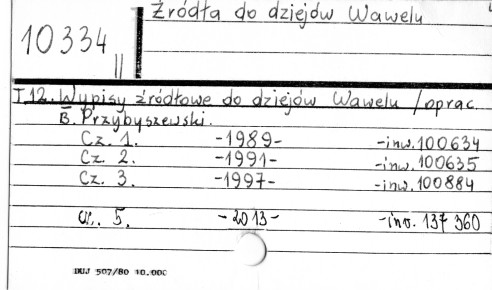 Źródła do dziejów Wawelu
10334
II
T. 12. Wypisy źródłowe do dziejów Wawelu /oprac.
B. Przybyszewski.
Cz. 1. -1989- -inw. 100634
Cz. 2. -1991- -inw. 100635
Cz. 3. -1997- -inw. 100884
cz. 5. -2013- -inv. 137 360
DUJ 507/80 10.000